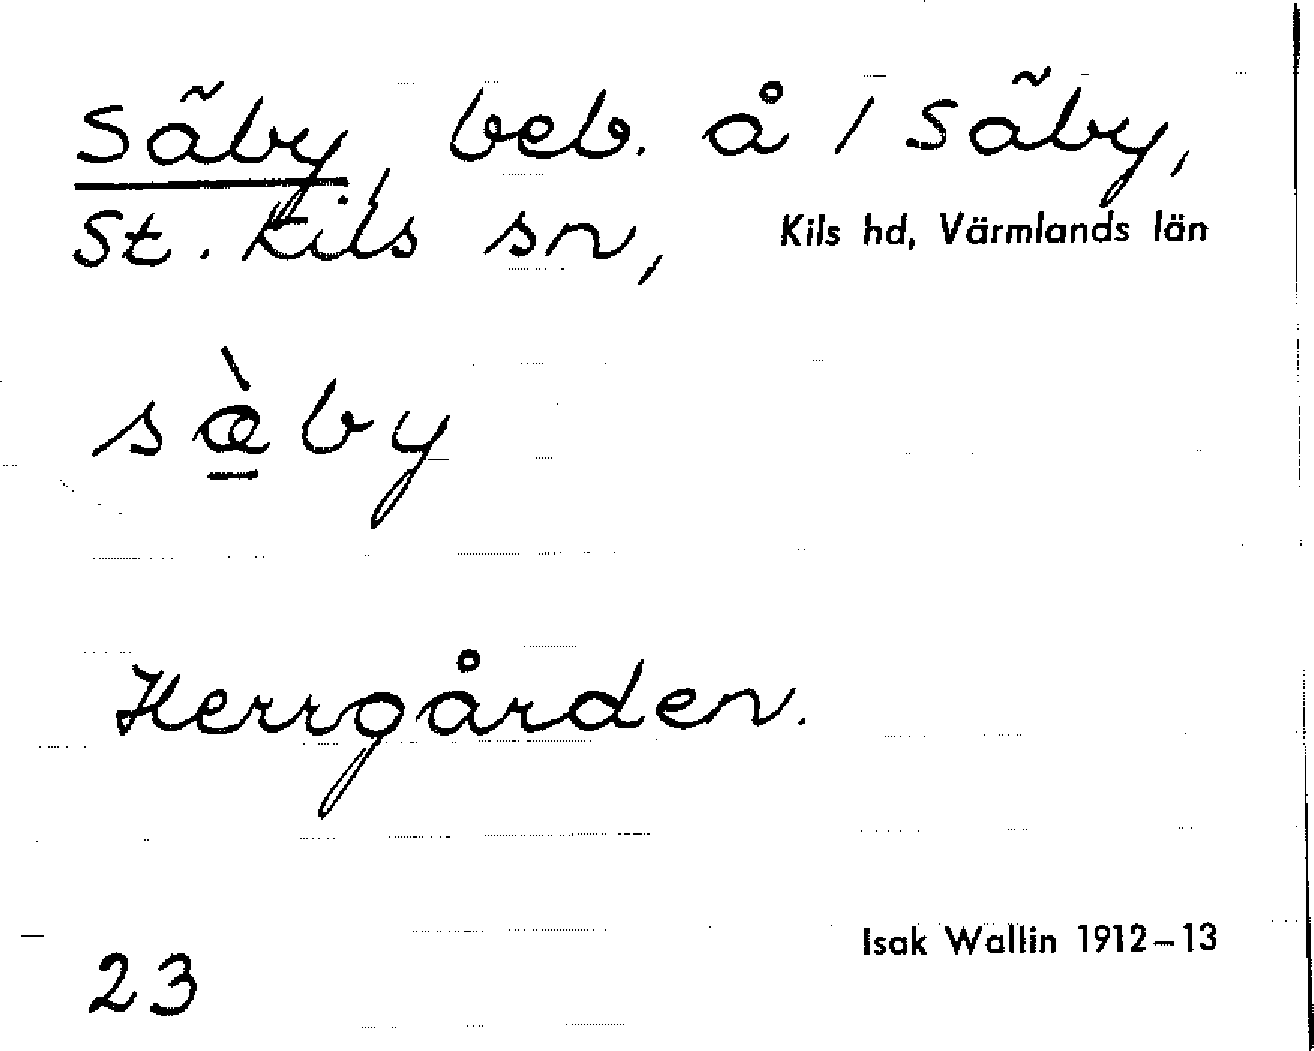 Säby, beb. å 1 Säby,
St. Kils sn, Kils hd, Värmlands län
sæ̀by
Herrgården.
Isak Wallin 1912–13
23